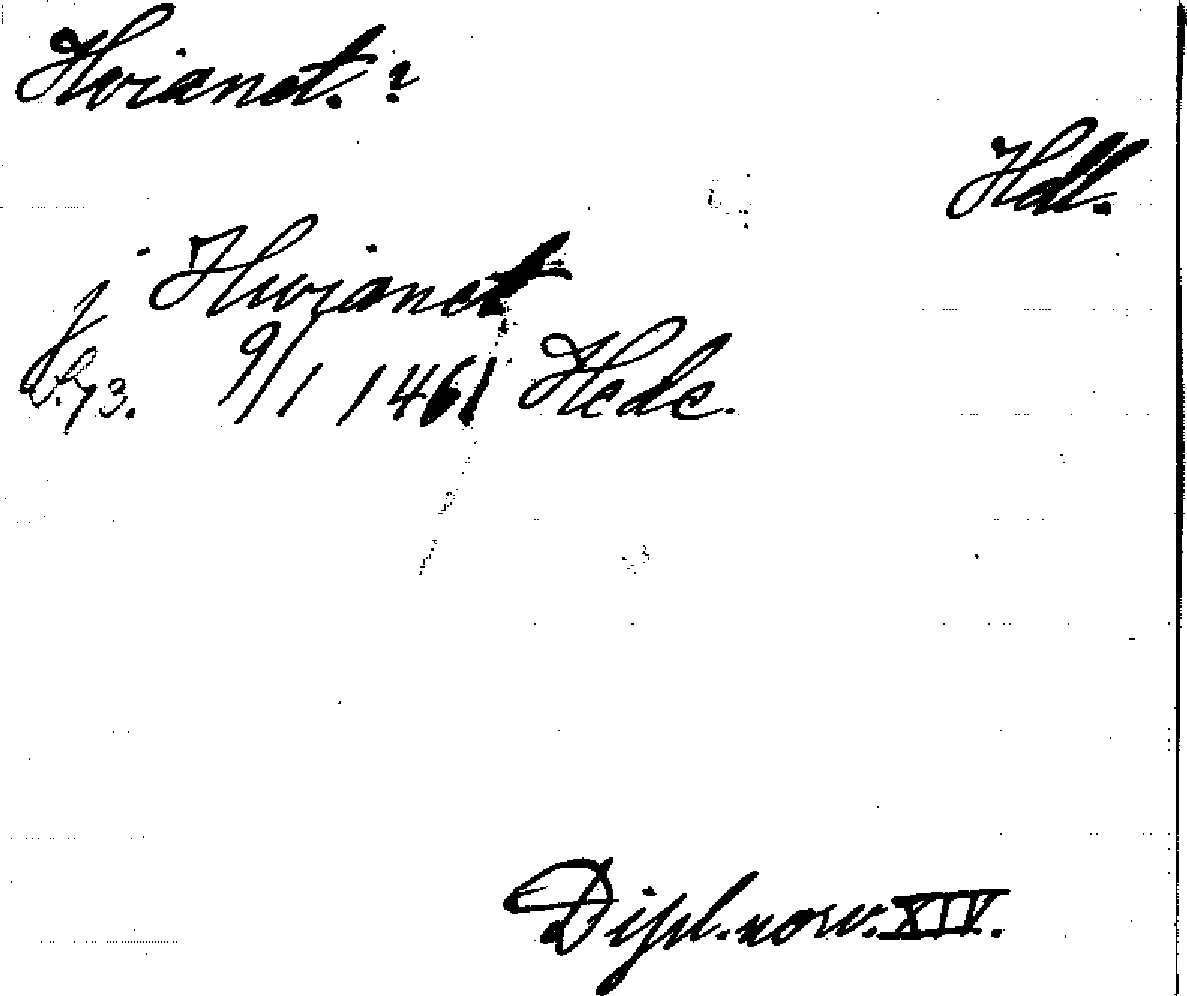 Hvianet. ?
Hdl.
j Hwianet
S. 73. 9/1 1461 Hede.
Dipl. norv. XIV.